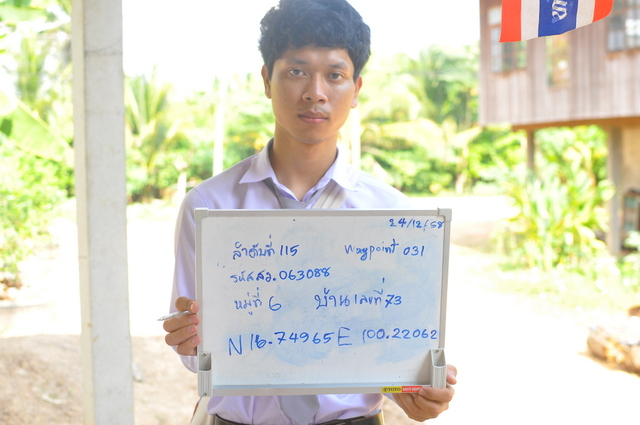 24/12/58
ลำดับที่ 115 Waypoint 031
รหัสสว.063088
หมู่ที่ 6 บ้านเลขที่ 73
N 16.74965 E 100.22062